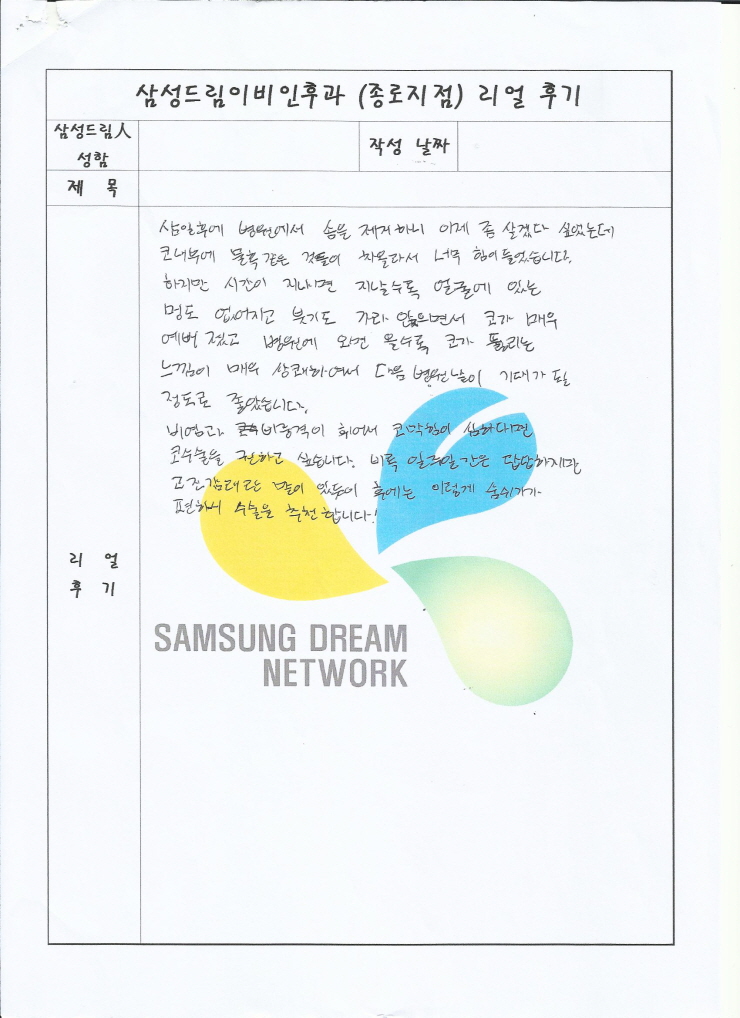 삼성드림이비인후과 (종로지점) 리얼 후기
삼성드림人
성함
작성 날짜
제 목
삼일후에 병원에서 솜을 제거하니 이제 좀 살겠다 싶었는데
코내부에 물혹같은 것들이 차올라서 너무 힘이들었습니다.
하지만 시간이 지나면 지날수록 얼굴에 있는
멍도 없어지고 붓기도 가라 앉으면서 코가 매우
예뻐 졌고 병원에 와전 올수록 코가 뚫리는
느낌이 매우 상쾌하여서 다음 병원날이 기대가 될
정도로 좋았습니다.
비염과 비중격이 휘어서 코막힘이 심하다면
코수술을 권하고 싶습니다. 비록 일주일간은 답답하지만
고진감래라는 말이 있듯이 후에는 이렇게 숨쉬기가
편하니 수술을 추천합니다!
리 얼
후 기
SAMSUNG DREAM
NETWORK